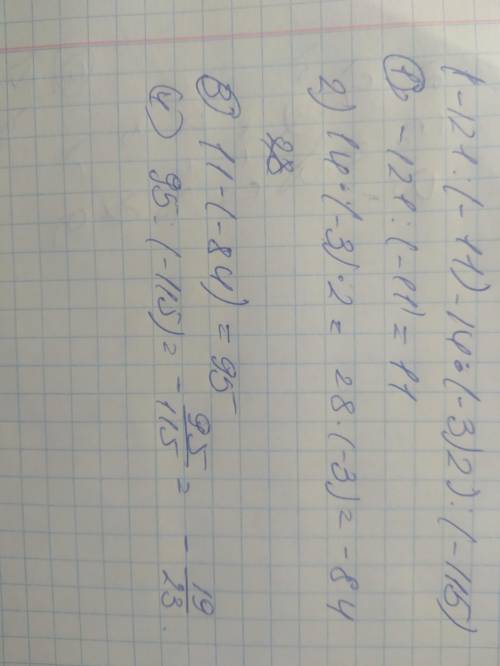 (-121:(-11)-14·(-3)2):(-115)
1) -121:(-11) = 11
2) 14·(-3)·2 = 28·(-3) = -84
28
3) 11-(-84) = 95
4) 95:(-115) = -95/115 = -19/23.